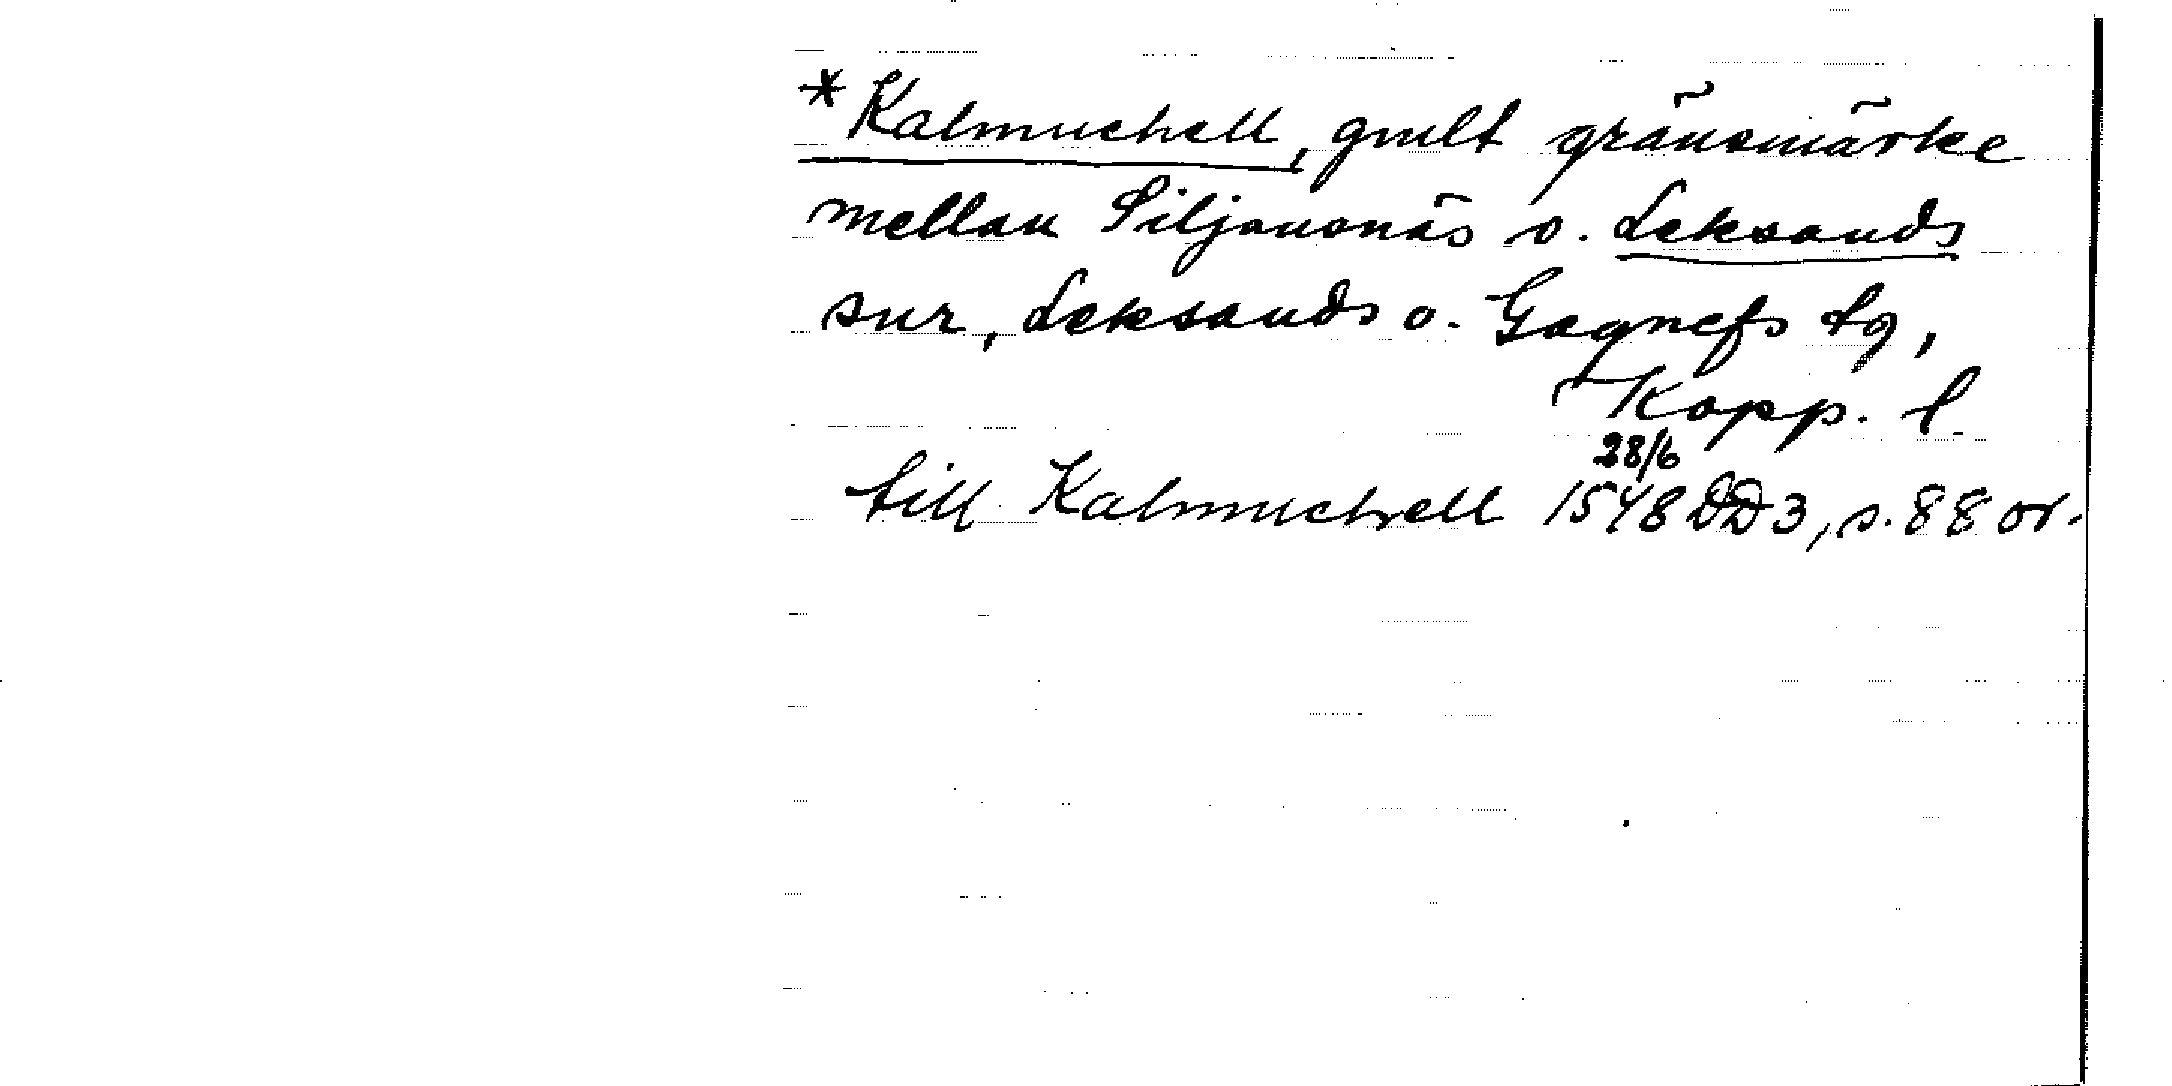 *Kalmuchell, gmlt gränsmärke
mellan Siljansnäs o. Leksands
snr, Leksands o. Gagnefs tg,
Kopp. l.
28/6
till Kalmuchell 1548 DD3, s. 88 or.